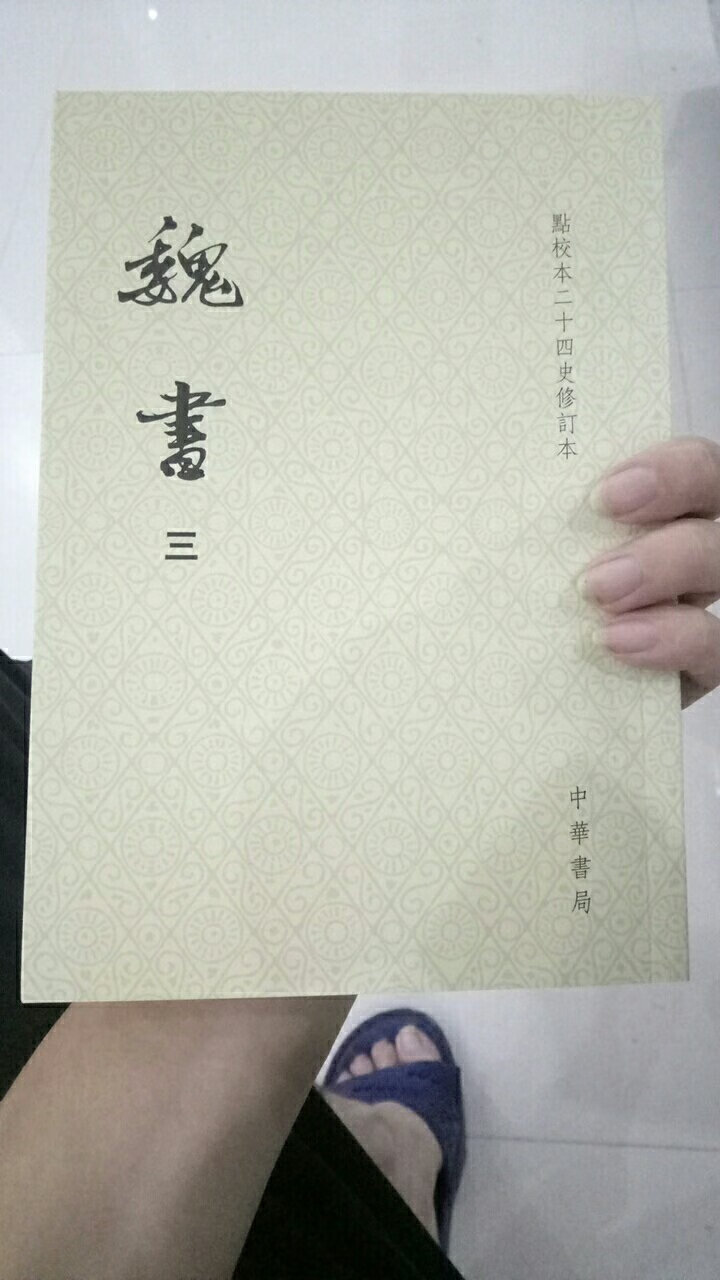 點校本二十四史修訂本
魏書三
中華書局